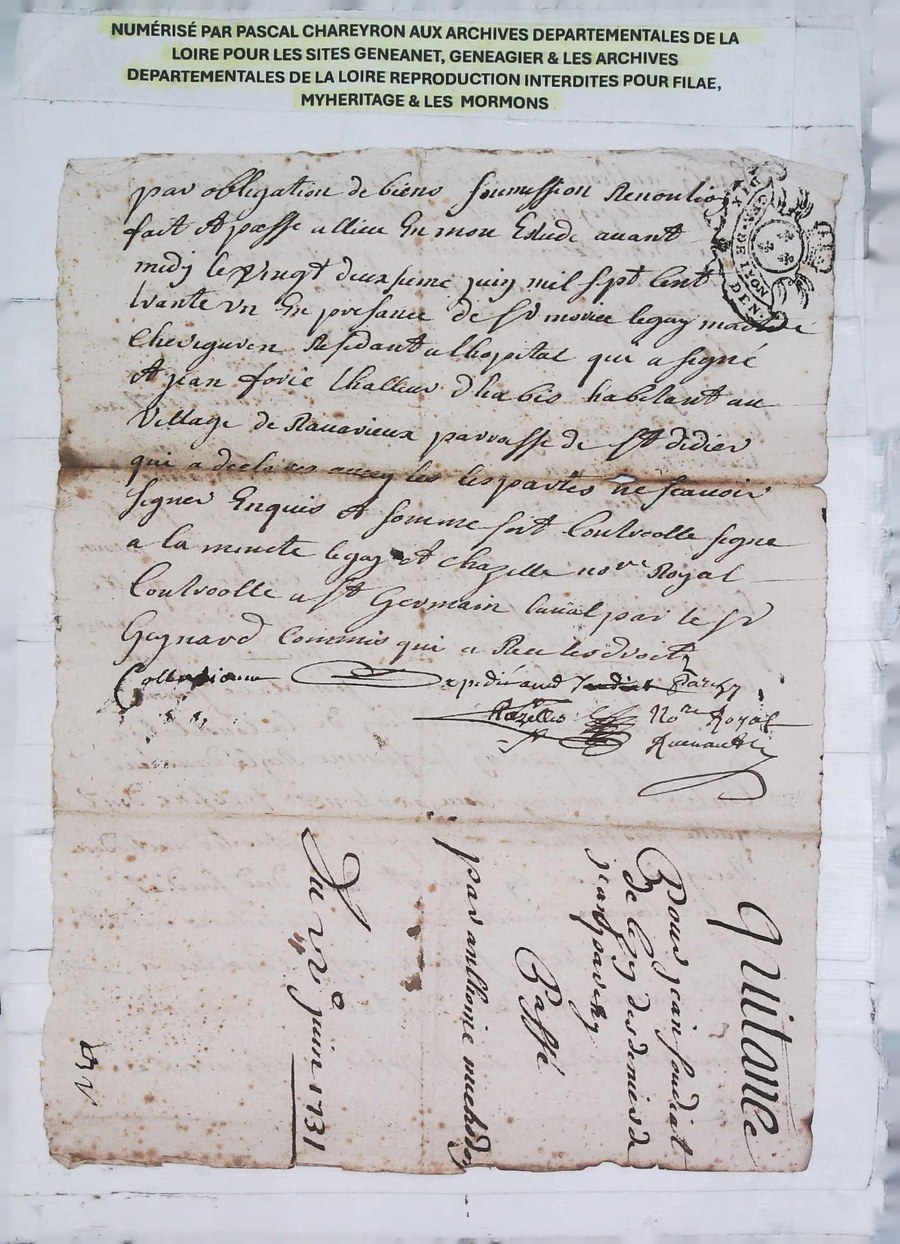 NUMÉRISÉ PAR PASCAL CHAREYRON AUX ARCHIVES DEPARTEMENTALES DE LA
LOIRE POUR LES SITES GENEANET, GENEAGIER & LES ARCHIVES
DEPARTEMENTALES DE LA LOIRE REPRODUCTION INTERDITES POUR FILAE,
MYHERITAGE & LES MORMONS
par obligation de biens soumission Renon
fait et passe allieu En mon Estude auant
midj le vingt deuxsieme juin mil sept cent
trante vn En presance de Sr legay
Residant a lhopital qui a signé
Et jean forie habitant au
Village de Rauarieux parroisse de St didier
qui a declares auecq les parties ne scauoir
signer Enquis et somme soit Controolle signe
a la minute legay et Chazelle nore Royal
Controolle a St Germain laual par le Sr
Gaynard Commis qui a Receu les droits
Collationne Expedié aud
Chazelles Nore Royal
Quitance
Pour jean
de des deniers de
jean
Passé
par anthoine
Du juin 1731